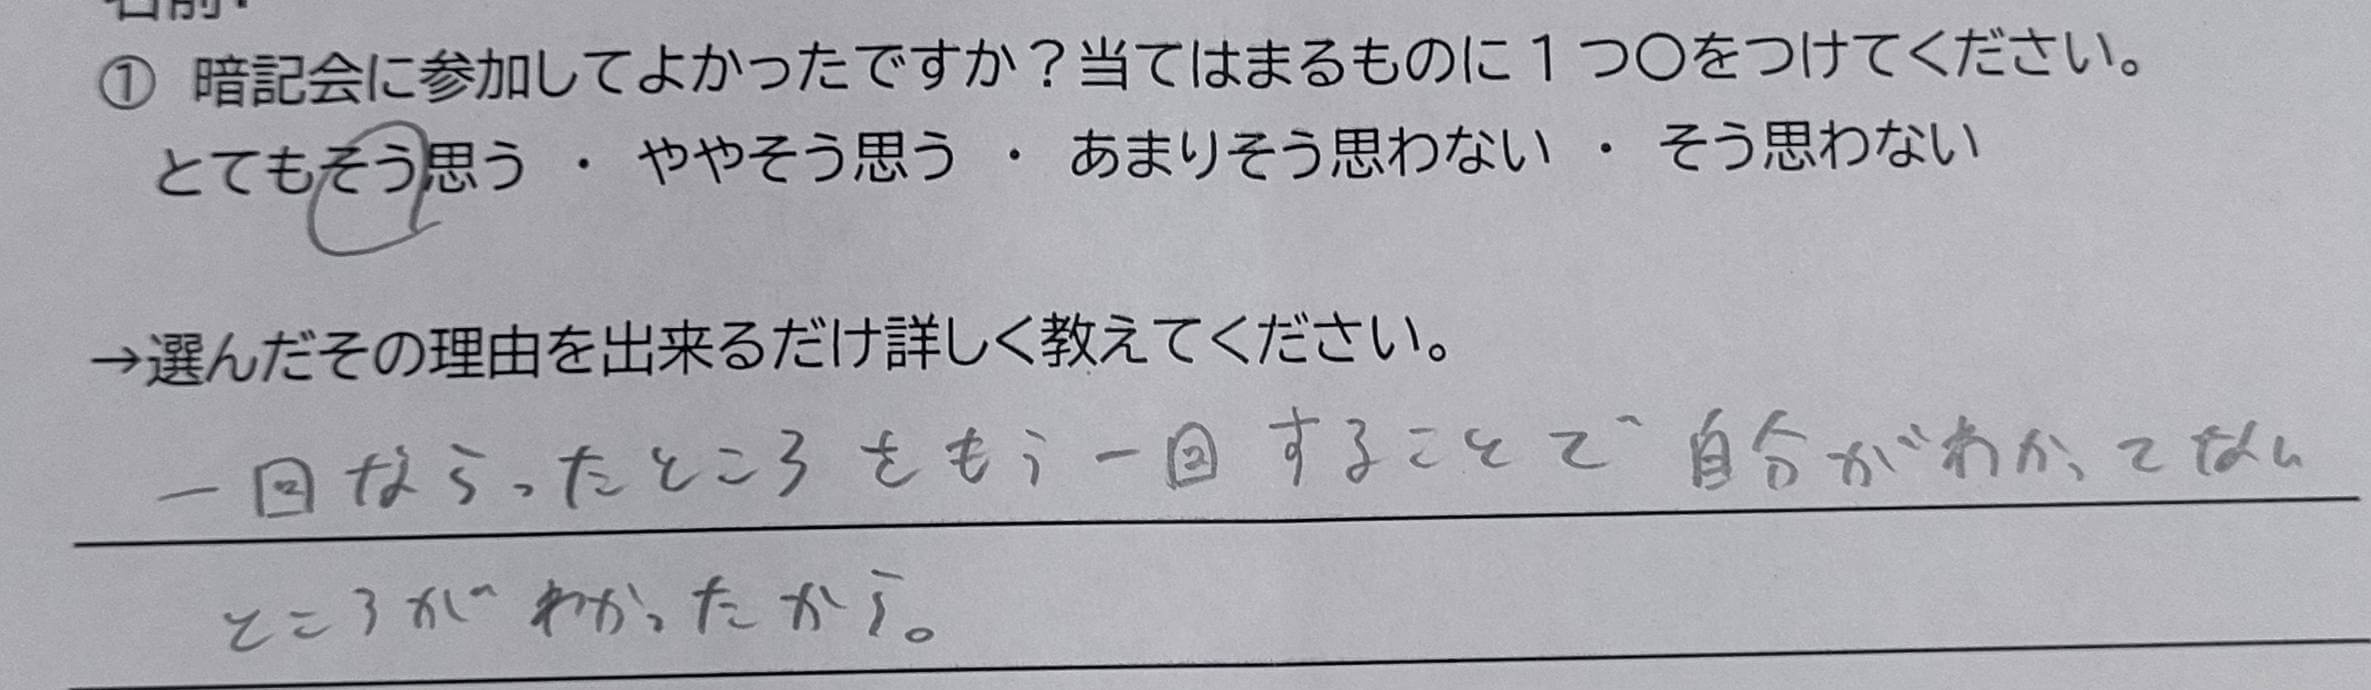 名前：
① 暗記会に参加してよかったですか？当てはまるものに１つ〇をつけてください。
とてもそう思う ・ ややそう思う ・ あまりそう思わない ・ そう思わない
→選んだその理由を出来るだけ詳しく教えてください。
一回ならったところをもう一回することで自分がわかってない
ところがわかったから。